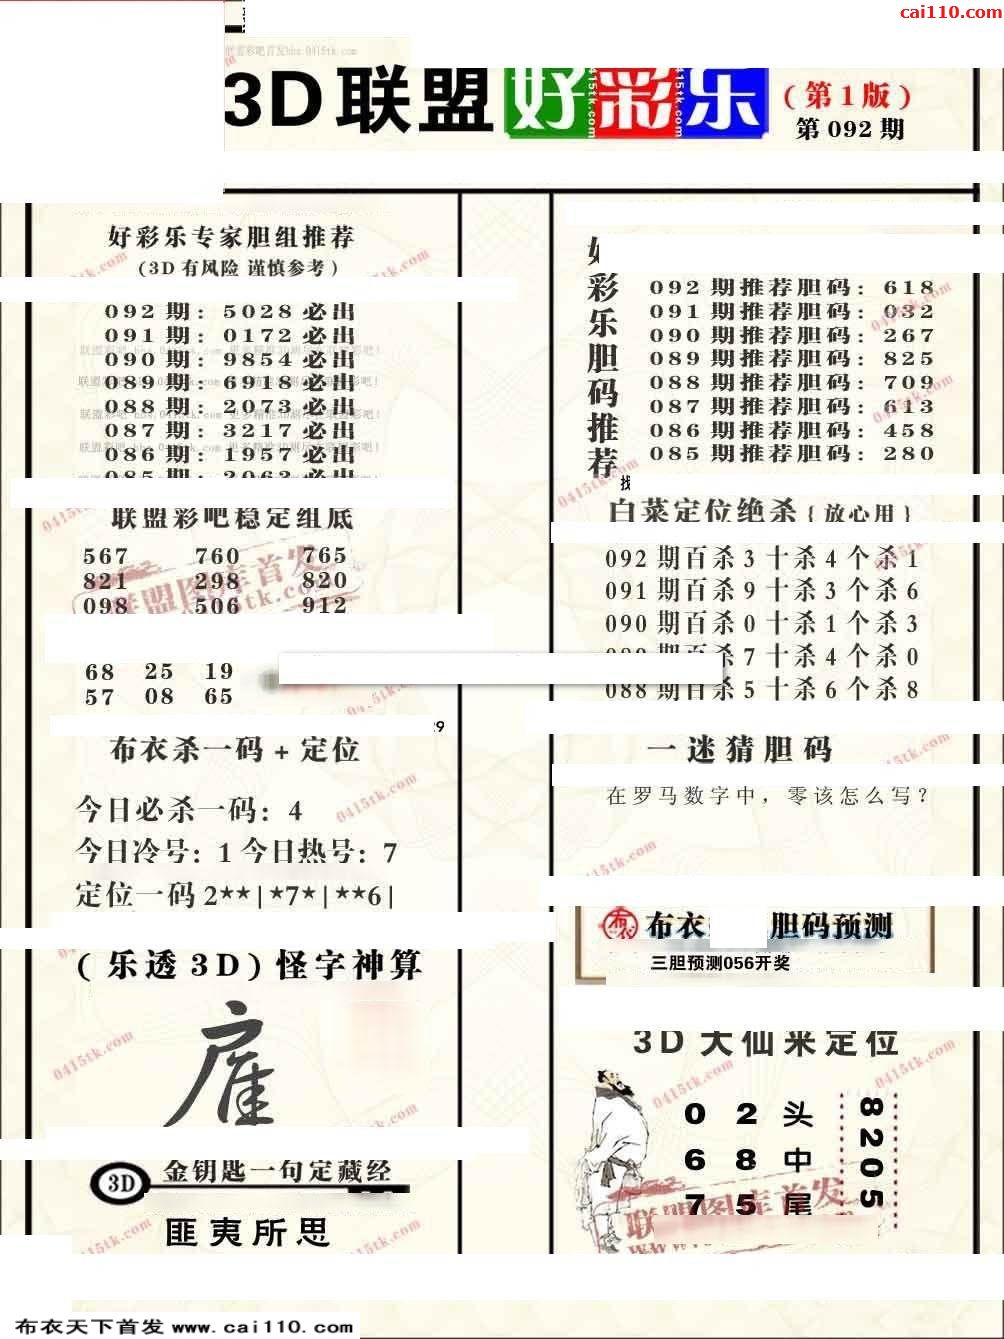 cai110.com
3D联盟好彩乐
(第1版)
第092期
好彩乐专家胆组推荐
(3D有风险 谨慎参考)
092期: 5028必出
091期: 0172必出
090期: 9854必出
089期: 6918必出
088期: 2073必出
087期: 3217必出
086期: 1957必出
085期: 2063必出
联盟彩吧稳定组底
567 760 765
821 298 820
098 506 912
68 25 19
57 08 65
布衣杀一码+定位
今日必杀一码: 4
今日冷号: 1 今日热号: 7
定位一码 2**|*7*|**6|
(乐透3D)怪字神算
雇
3D
金钥匙一句定藏经
匪夷所思
好彩乐胆码推荐
092期推荐胆码: 618
091期推荐胆码: 032
090期推荐胆码: 267
089期推荐胆码: 825
088期推荐胆码: 709
087期推荐胆码: 613
086期推荐胆码: 458
085期推荐胆码: 280
白菜定位绝杀{放心用}
092期百杀3十杀4个杀1
091期百杀9十杀3个杀6
090期百杀0十杀1个杀3
杀7十杀4个杀0
088期百杀5十杀6个杀8
一迷猜胆码
在罗马数字中，零该怎么写?
布衣 胆码预测
三胆预测056开奖
3D大仙来定位
0 2头
6 8中
7 5尾
8205
联盟图库首发
布衣天下首发 www.cai110.com